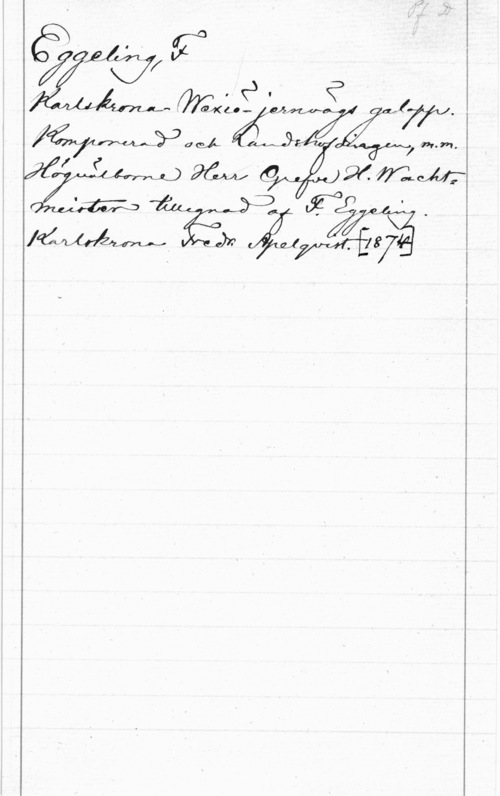 Pf D
Eggeling, F
Karlskrona-Wexiö-jernvägs galopp.
Komponerad och Landshöfdingen, m.m.
Högvälborne Herr Grefve H. Wacht=
meister tillegnad af F. Eggeling.
Karlskrona Fredr. Apelqvist. [1874]